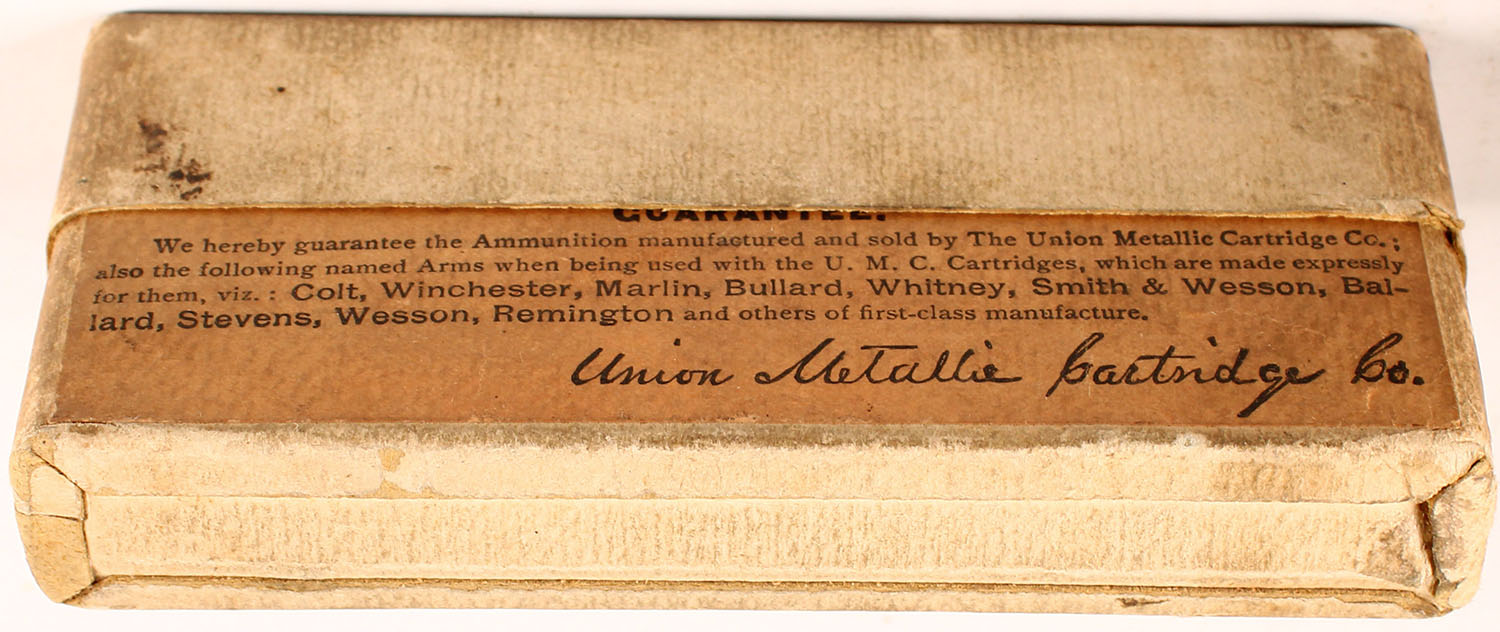 GUARANTEE.
We hereby guarantee the Ammunition manufactured and sold by The Union Metallic Cartridge Co.;
also the following named Arms when being used with the U. M. C. Cartridges, which are made expressly
for them, viz. : Colt, Winchester, Marlin, Bullard, Whitney, Smith & Wesson, Bal-
lard, Stevens, Wesson, Remington and others of first-class manufacture.
Union Metallic Cartridge Co.